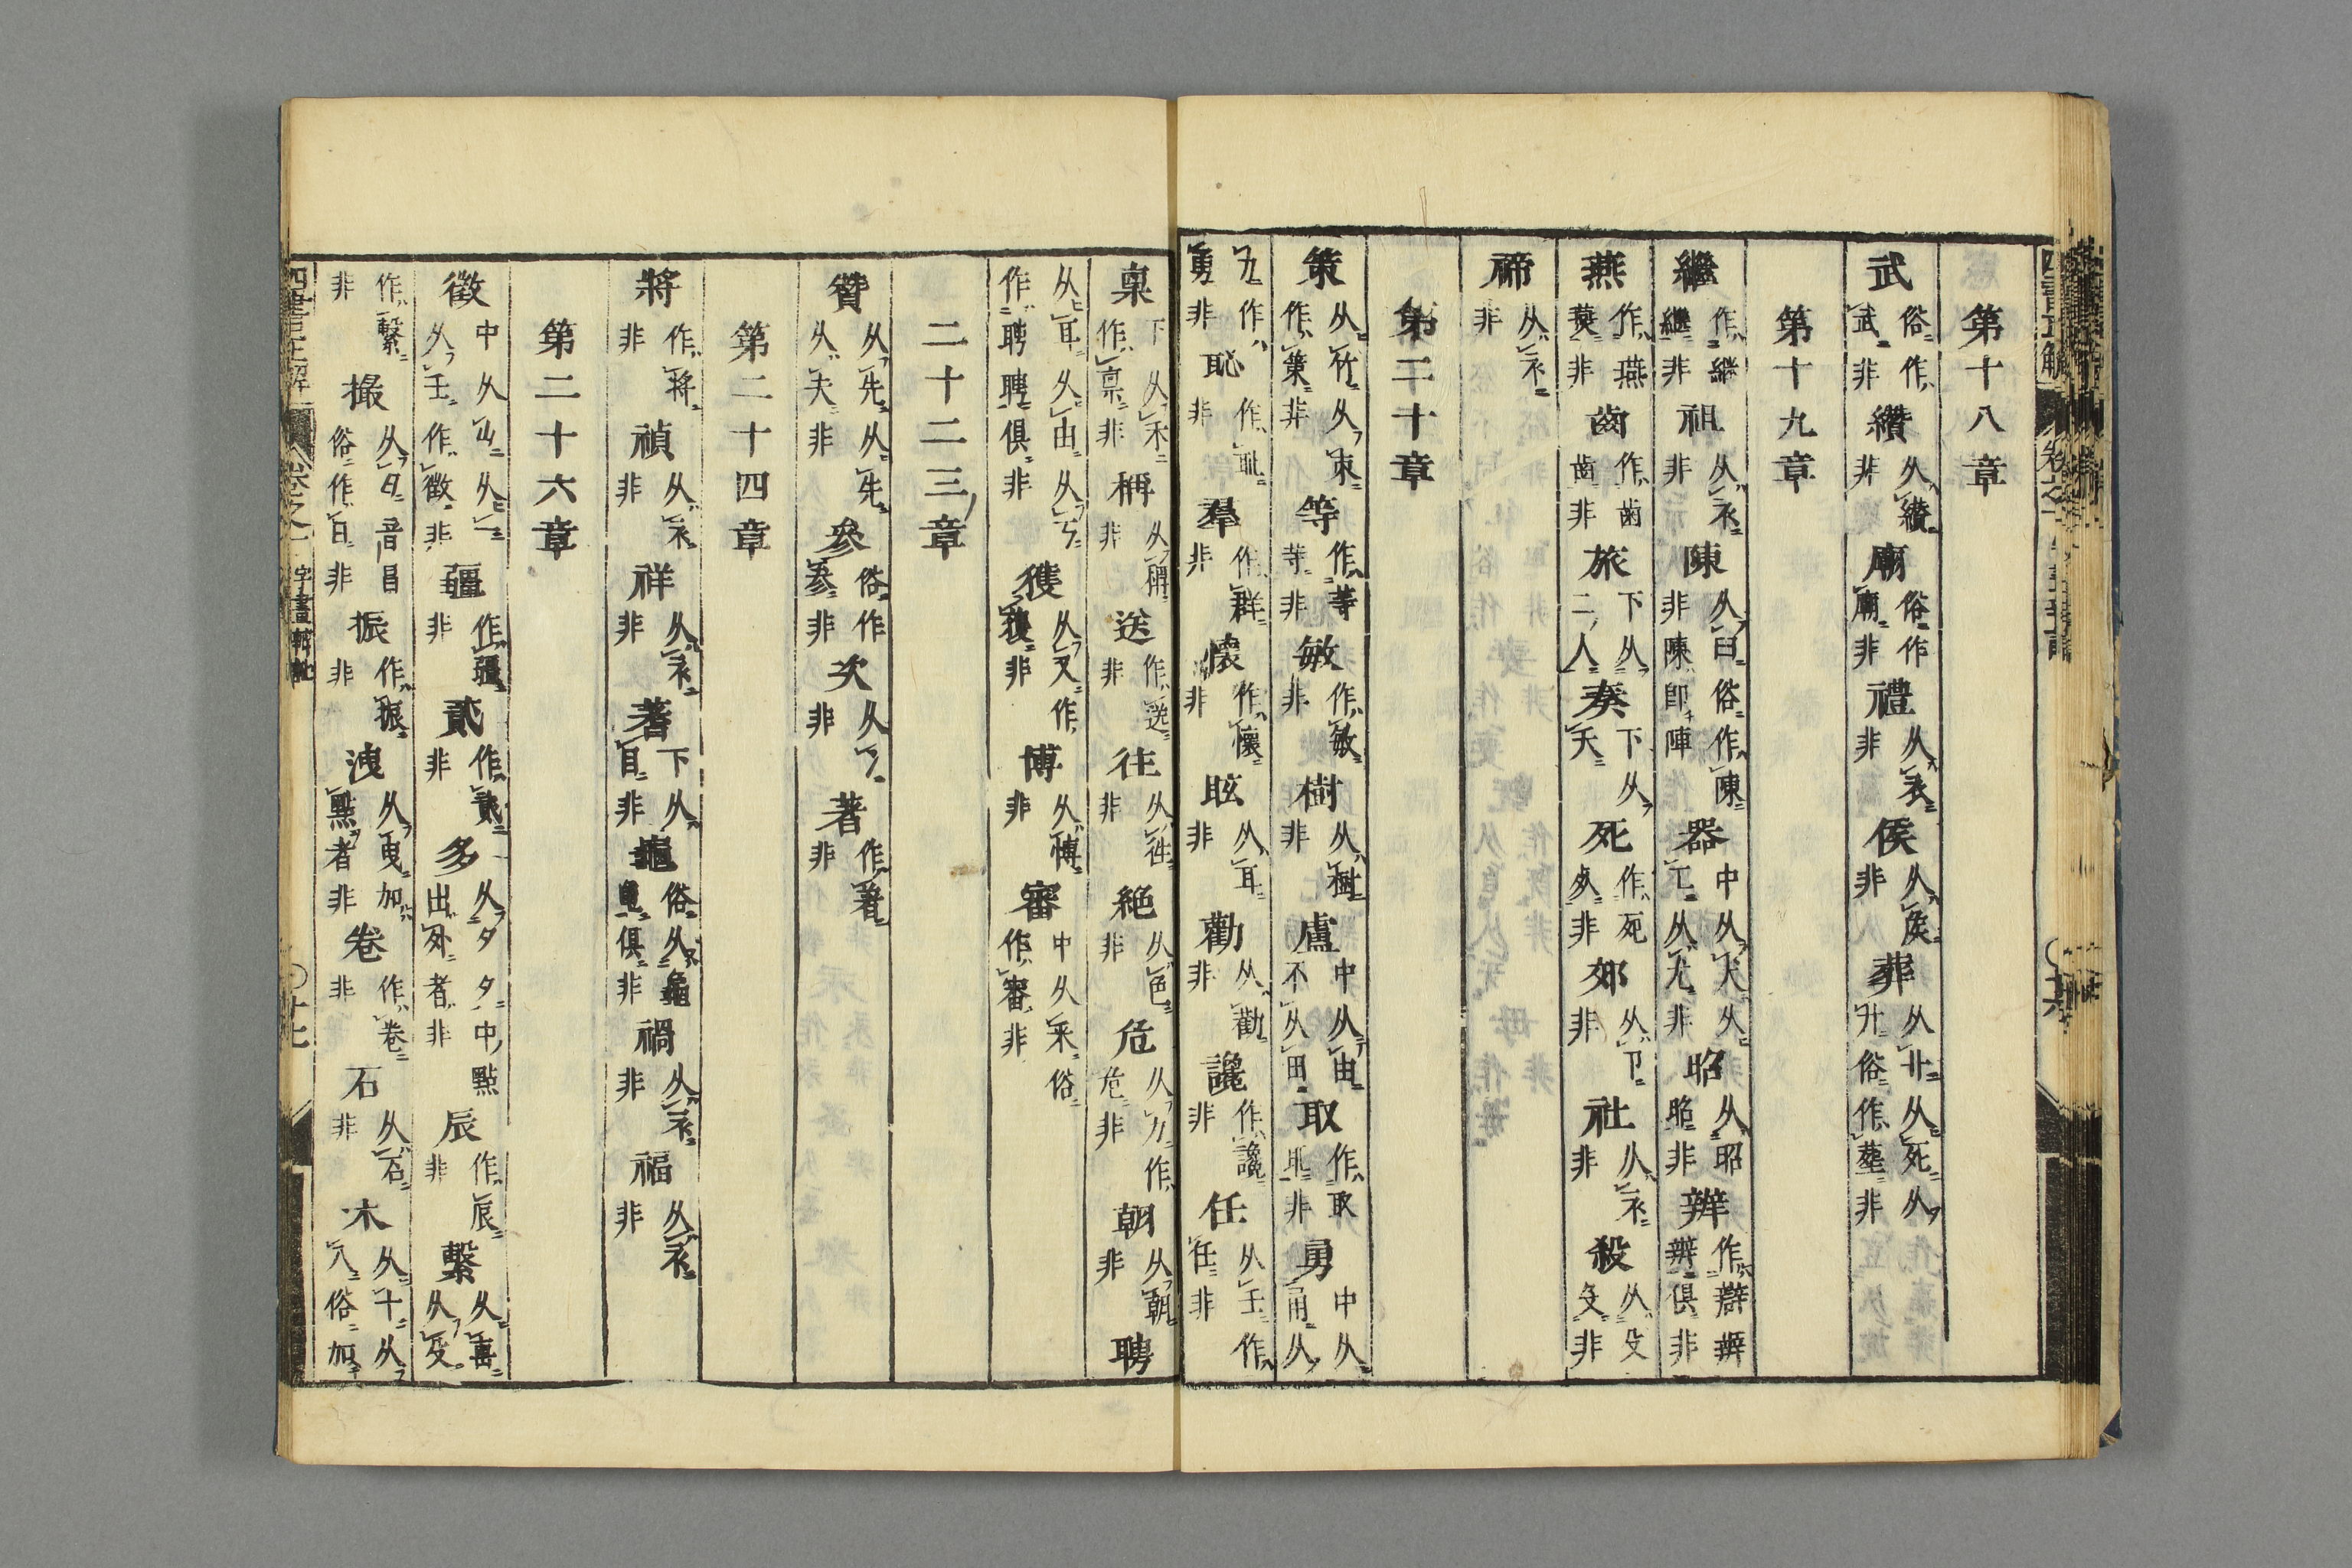 第十八章
武 俗作武非 纘 从纉非 廟 俗作廟非 禮 从衣非 侯 从矦非 葬 从廾从死从廾俗作塟非
第十九章
繼 作継継非 祖 从衣非 陳 从曰非陳即陣俗作陳 器 中从犬从工从尤非 昭 从昭昭非 辨 作辨辨辨俱非
燕 作燕㷼非 齒 作歯齒非 旅 下从二人 奏 下从天 死 作死夗非 郊 从卩非 社 从衣非 殺 从殳攵非
禘 从衣非
第二十章
策 从竹从朿作策非 等 作䓁等非 敏 作敏非 樹 从樹非 盧 中从由不从田 取 作取耴非 勇 中从用从
力作勇非 恥 作耻非 羣 作群非 懷 作懐非 眩 从耳非 勸 从勧非 讒 作讒非 任 从王作任非
稟 下从禾作禀非 稱 从稱非 送 作送非 往 从徃非 絶 从色非 危 从刀作危非 朝 从朝非 聘
从耳从由从丂作聘聘俱非 獲 从又作獲非 博 从愽非 審 中从釆俗作審非
二十二三章
贊 从先从先从夫非 參 俗作叅非 次 从冫非 著 作着非
第二十四章
將 作将非 禎 从衣非 祥 从衣非 蓍 下从目非 龜 俗从龜黽俱非 禍 从衣非 福 从衣非
第二十六章
徵 中从山从一从王作徴非 疆 作疆非 貳 作貳非 多 从夕夕中點出外者非 辰 作辰非 繫 从𠧪从殳
作繋非 撮 从曰音昌俗作日非 振 作振非 洩 从曳加點者非 卷 作巻非 石 从石非 木 从十从八俗加
四書正解 卷之一 字畫辨訛 十七